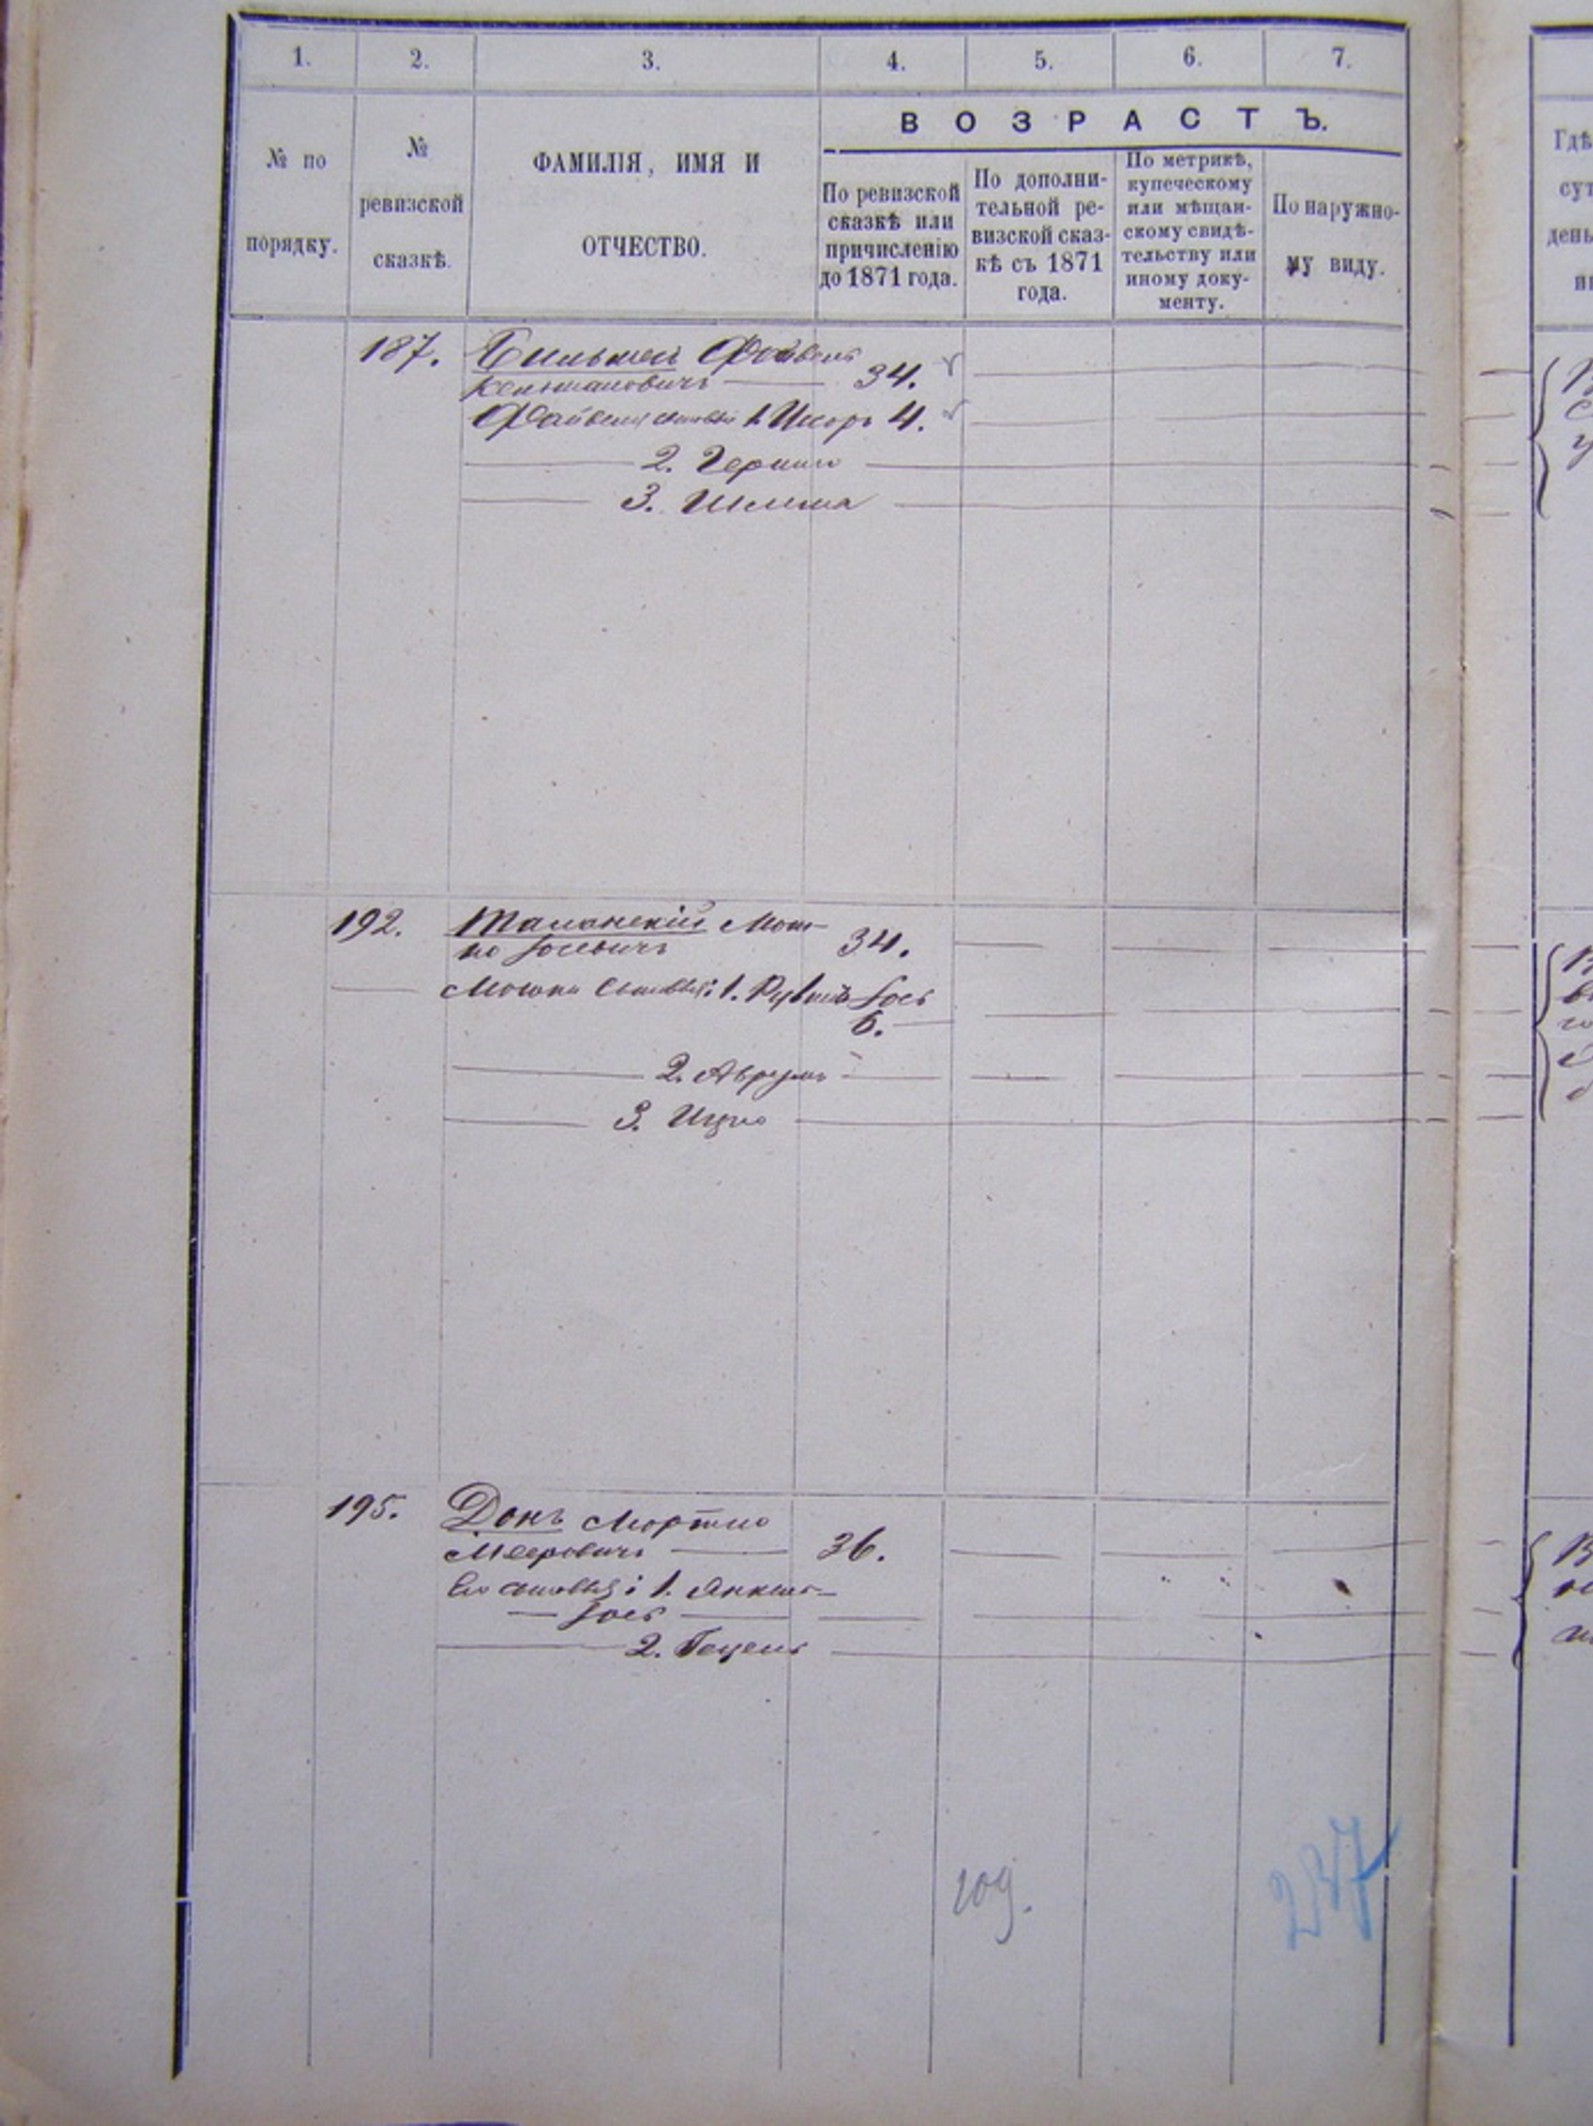 1. 2. 3. 4. 5. 6. 7.
№ по порядку.
№ ревизской сказкѣ.
ФАМИЛІЯ, ИМЯ И
ОТЧЕСТВО.
ВОЗРАСТЪ.
По ревизской
сказкѣ или
причисленію
до 1871 года.
По дополни-
тельной ре-
визской сказ-
кѣ съ 1871
года.
По метрикѣ,
купеческому
или мѣщан-
скому свидѣ-
тельству или
иному доку-
менту.
По наружно-
му виду.
Гдѣ
сут
день
187. Файвель
34.
Файвеля сыновья 1. 4.
2. Гершко
3. Шлема
192. Таманскій Мош-
ко Іосевичъ 34.
Мошки сыновья: 1. Іось
6.
2. Аврумъ
3. Ицко
195. Донъ Мортко
Мееровичъ 36.
Его сыновья: 1. Янкель-
Іось
2. Гецель
109.
237